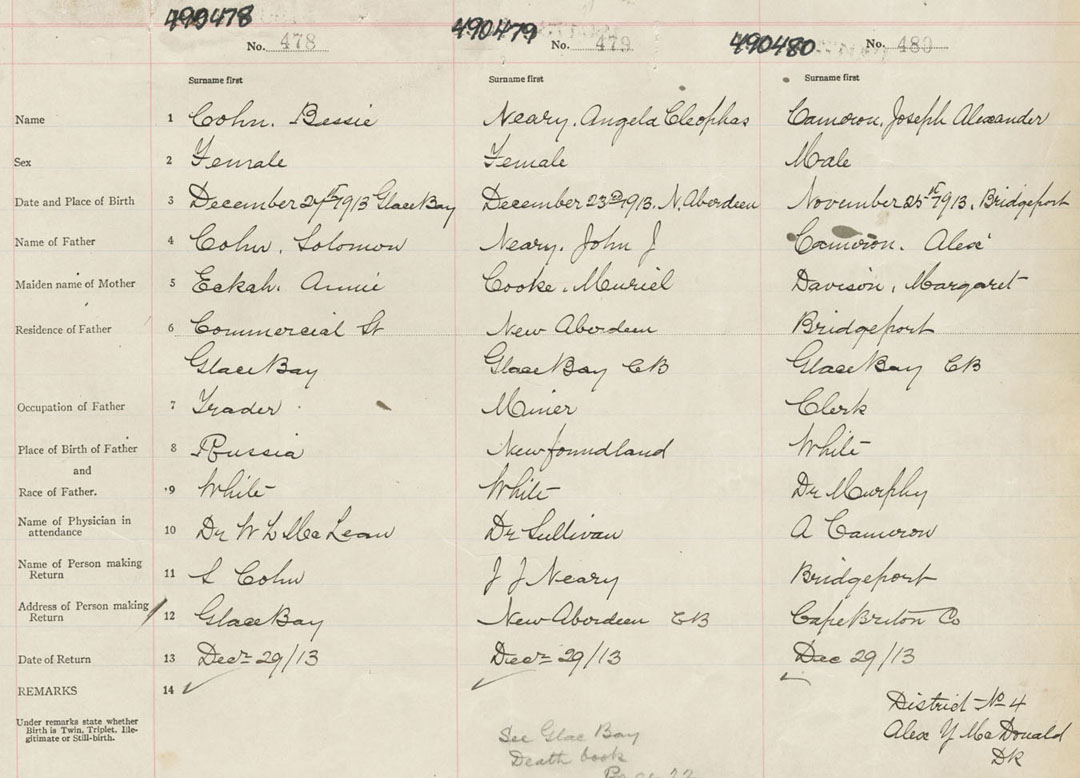 490478 490479 490480
No. 478 No. 479 No. 480
Surname first Surname first Surname first
Name 1 Cohn. Bessie Neary. Angela Cleophas Cameron. Joseph Alexander
Sex 2 Female Female Male
Date and Place of Birth 3 December 1913 Glace Bay December 23rd 1913. N. Aberdeen November 25th 1913. Bridgeport
Name of Father 4 Cohn. Solomon Neary. John J Cameron. Alex
Maiden name of Mother 5 Annie Cooke. Muriel Davison, Margaret
Residence of Father 6 Commercial St New Aberdeen Bridgeport
Glace Bay Glace Bay CB Glace Bay CB
Occupation of Father 7 Trader Miner Clerk
Place of Birth of Father 8 Russia Newfoundland White
and
Race of Father. 9 White White Dr Murphy
Name of Physician in attendance 10 Dr W L McLean Dr Sullivan A Cameron
Name of Person making Return 11 S Cohn J J Neary Bridgeport
Address of Person making Return 12 Glace Bay New Aberdeen CB Cape Briton Co
Date of Return 13 Decr 29/13 Decr 29/13 Dec 29/13
REMARKS 14
District No 4
Under remarks state whether Alex Y McDonald
Birth is Twin, Triplet, Ille-
gitimate or Still-birth. See Glac Bay
Death book